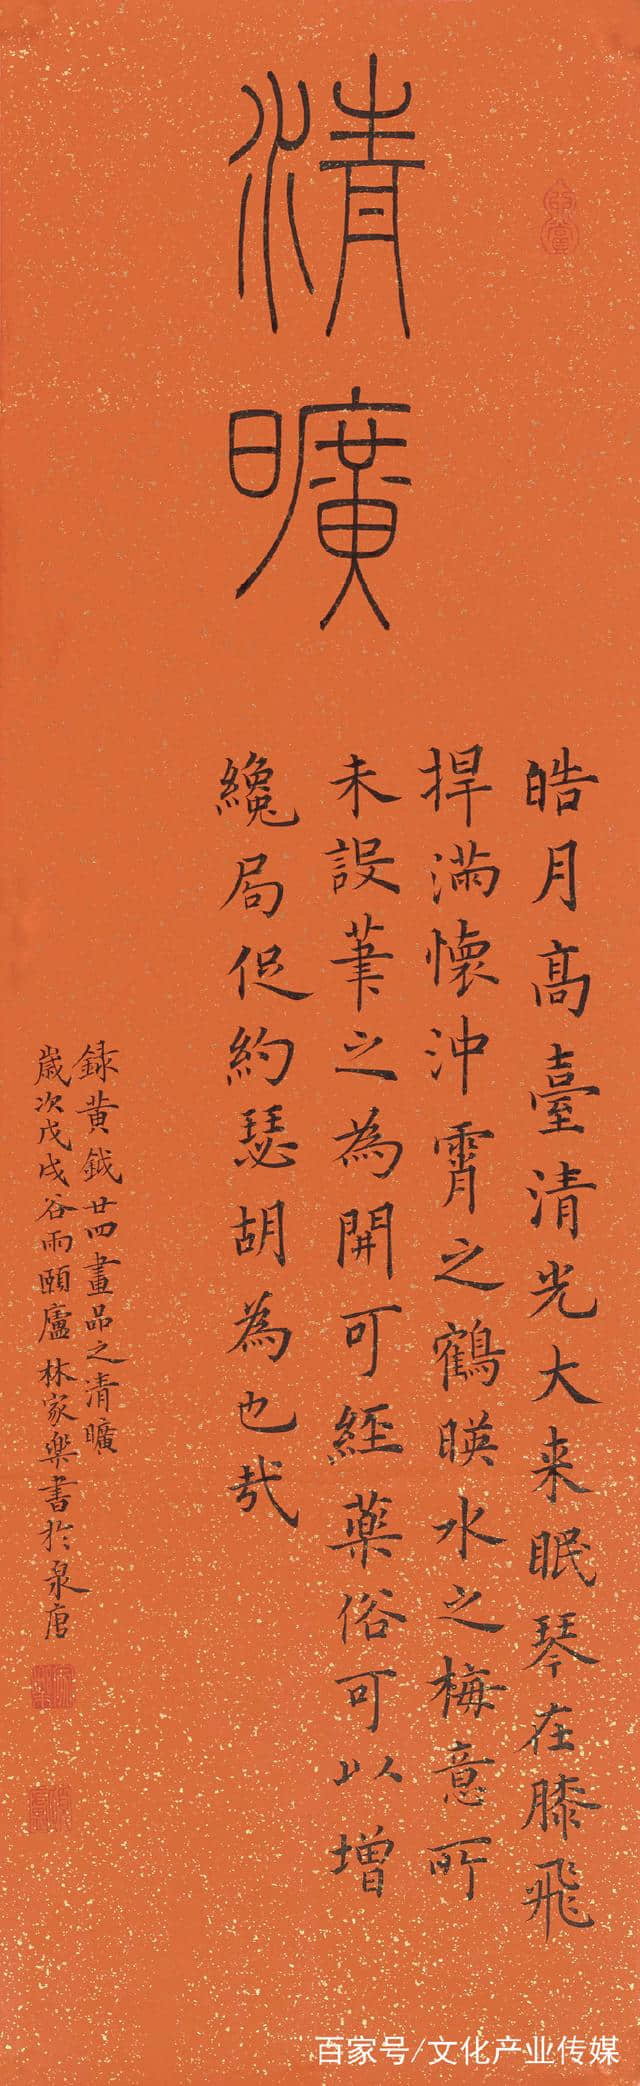 清曠
皓月高臺清光大来眠琴在膝飛
捍滿懷沖霄之鶴暎水之梅意所
未設筆之為開可經藥俗可以增
纔局促約瑟胡為也哉
録黄鉞廿四畫品之清曠
歲次戊戌谷雨頤廬林家樂書於泉唐
百家号/文化产业传媒